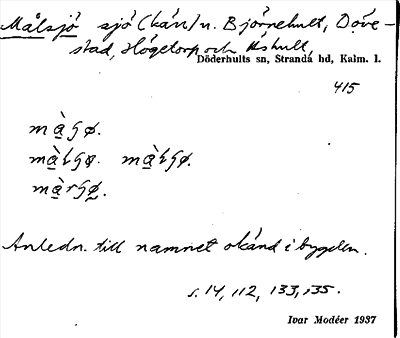 Målsjö sjö (kärr) n. Björnehult, Döve-
stad, Högetorp och Åshult,
Döderhults sn, Stranda hd, Kalm. l.
415
Anledn. till namnet okänd i bygden.
s. 14, 112, 133, 135.
Ivar Modéer 1937